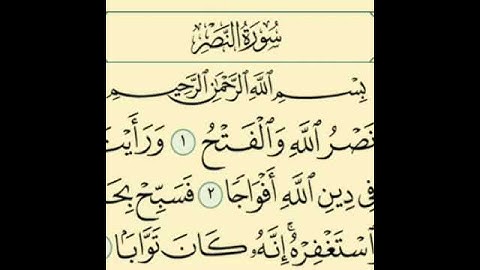 سُورَةُ النَّصْرِ
بِسْمِ اللَّهِ الرَّحْمَٰنِ الرَّحِيمِ
نَصْرُ اللَّهِ وَالْفَتْحُ ١ وَرَأَيْتَ
فِي دِينِ اللَّهِ أَفْوَاجًا ٢ فَسَبِّحْ بِحَ
اسْتَغْفِرْهُ ۚ إِنَّهُ كَانَ تَوَّابًا